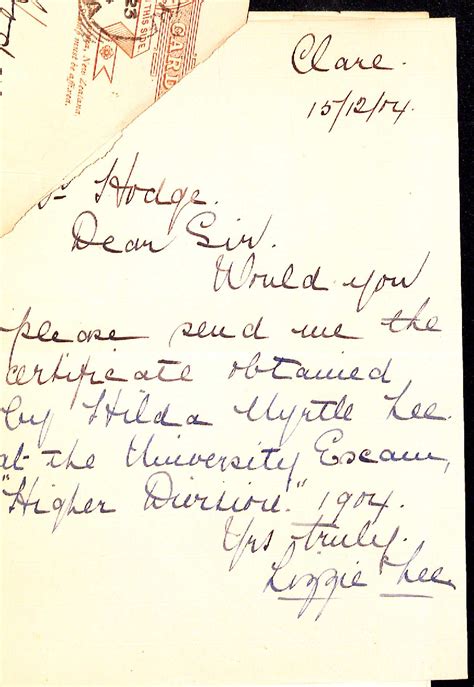 THIS SIDE
CARD
23
A
New Zealand
must be affixed.
Clare.
15/12/04.
Hodge.
Dear Sir.
Would you
please send me the
certificate obtained
by Hilda Myrtle Lee.
at the University Exam,
"Higher Division." 1904.
Yrs truly.
Lizzie Lee